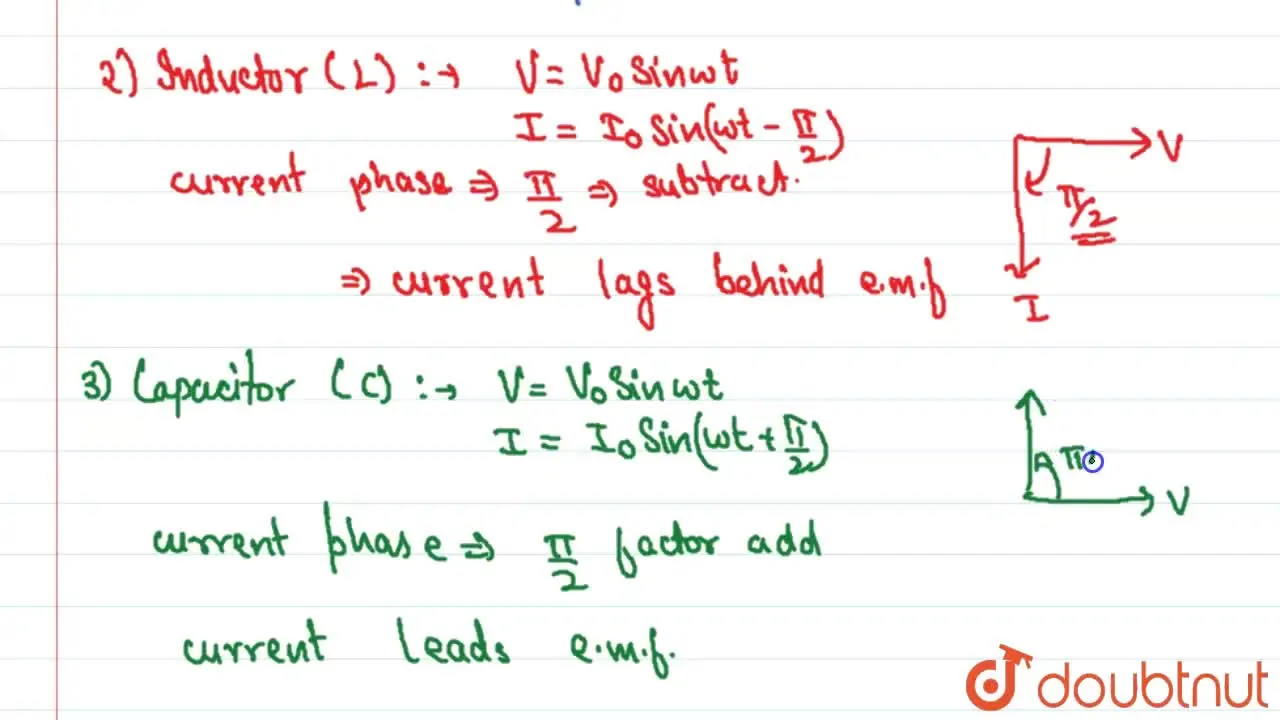 2) Inductor (L) :→ V = V₀ Sinωt
I = I₀ Sin(ωt - π/2)
V
current phase ⇒ π/2 ⇒ subtract.
π/2
⇒ current lags behind e.m.f
I
3) Capacitor (C) :→ V = V₀ Sinωt
I = I₀ Sin(ωt + π/2)
π
V
current phase ⇒ π/2 factor add
current leads e.m.f.
doubtnut